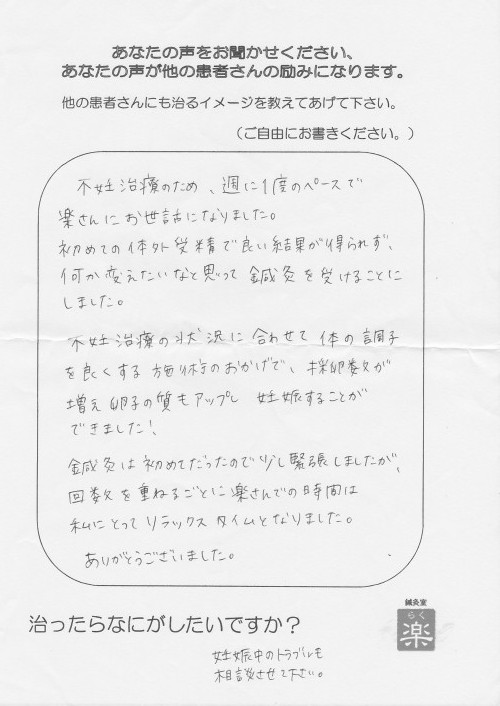 あなたの声をお聞かせください、
あなたの声が他の患者さんの励みになります。
他の患者さんにも治るイメージを教えてあげて下さい。
（ご自由にお書きください。）
不妊治療のため、週に1度のペースで
楽さんにお世話になりました。
初めての体外受精で良い結果が得られず、
何か変えたいなと思って鍼灸を受けることに
しました。
不妊治療の状況に合わせて体の調子
を良くする施術のおかげで、採卵数が
増え卵子の質もアップし妊娠することが
できました！
鍼灸は初めてだったので少し緊張しましたが、
回数を重ねるごとに楽さんでの時間は
私にとってリラックスタイムとなりました。
ありがとうございました。
鍼灸室
らく
楽
治ったらなにがしたいですか？
妊娠中のトラブルも
相談させて下さい。